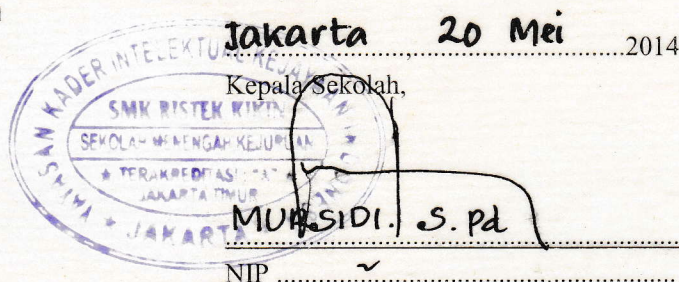 Jakarta, 20 Mei 2014
Kepala Sekolah,
YAYASAN KADER INTELEKTUAL KEJAYAAN
SMK RISTEK KIKIN
SEKOLAH MENENGAH KEJURUAN
★ TERAKREDITASI
JAKARTA TIMUR
★ JAKARTA
MURSIDI. S.Pd
NIP ~